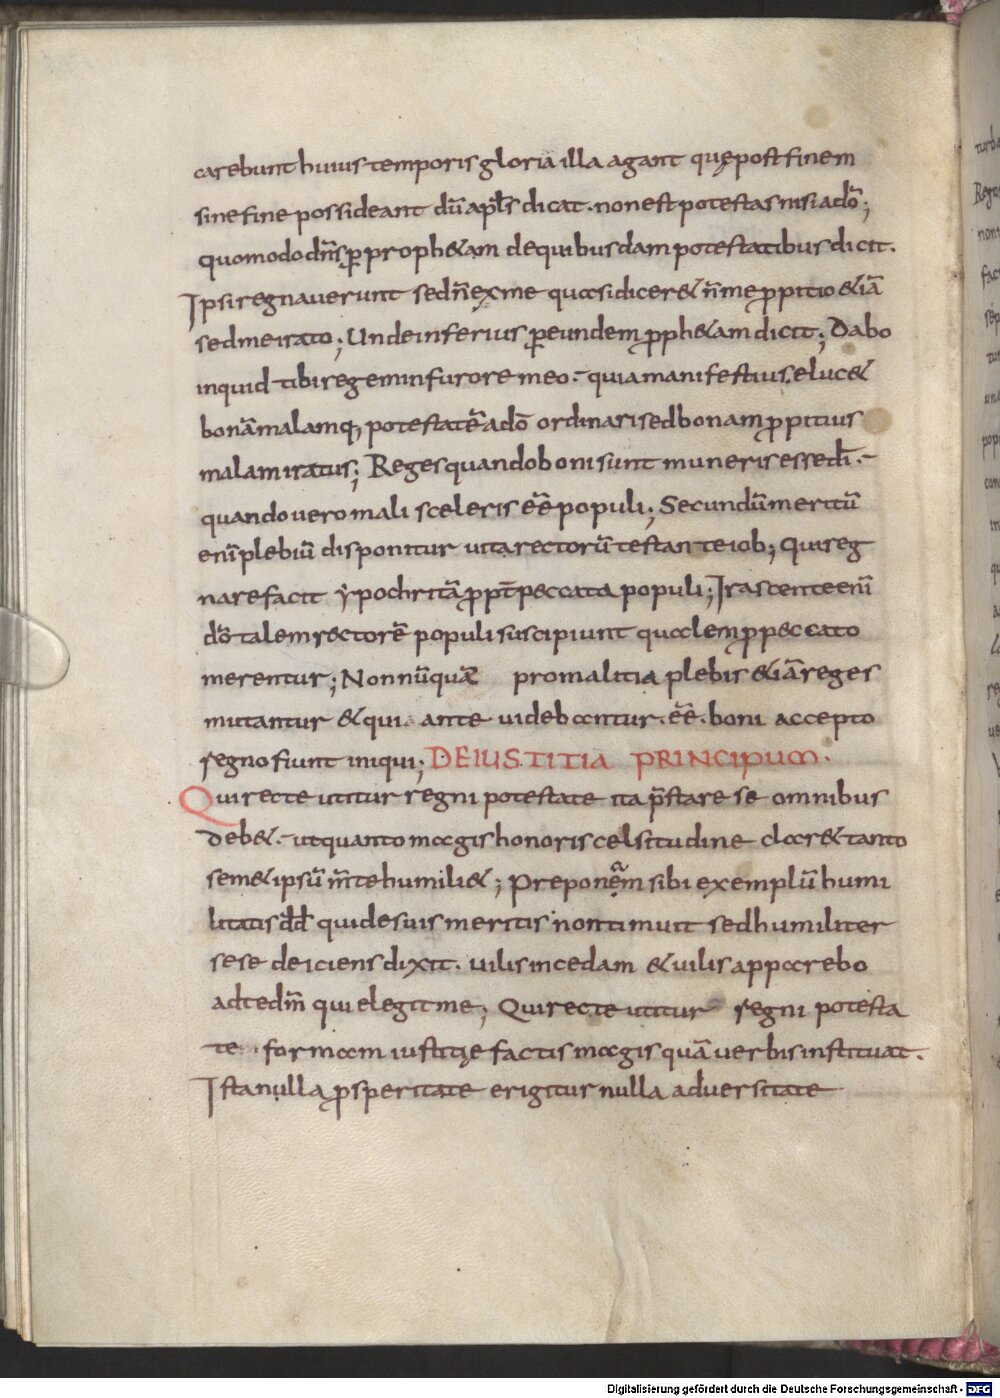 carebunt huius temporis gloria illa agant quę post finem
sine fine possideant dū apƚs dicat. non est potestas nisi a dō;
quomodo dn̄s ꝑ proph&am de quibusdam potestatibus dicit.
Ipsi regnauerunt sed n̄ ex me quasi dicer& n̄ me ꝓpitio &iā
sed me irato; Unde inferius ꝑ eundem ꝓph&am dicit; Dabo
inquid tibi regem in furore meo. quia manifestius eluc&
bonā malamq; potestatē a dō ordinari sed bonam ꝓpitius
malam iratus; Reges quando boni sunt muneris esse dī.
quando uero mali sceleris eē̄ populi; Secundū meritū
enī plebiū disponitur uita rectorū testante iob; Qui reg
nare facit ypochritā ꝓpt̄ peccata populi; Irascente enī
dō talem rectorē populi suscipiunt qualem ꝓ peccato
merentur; Nonnūquā pro malitia plebis &iā reges
mutantur & qui ante uidebantur eē̄ boni accepto
regno fiunt iniqui; DE IUSTITIA PRINCIPUM.
Qui recte utitur regni potestate ita p̄stare se omnibus
deb&. ut quanto magis honoris celsitudine clar& tanto
sem&ipsū m̄te humili&; Preponēam sibi exemplū humi
litatis dd̄ qui de suis meritis non timuit sed humiliter
sese deiciens dixit. uilis incedam & uilis apparebo
ante dm̄ qui elegit me; Qui recte utitur regni potesta
te formam iustitię factis magis quā uerbis instituat.
Ista nulla ꝓsperitate erigitur nulla aduersitate